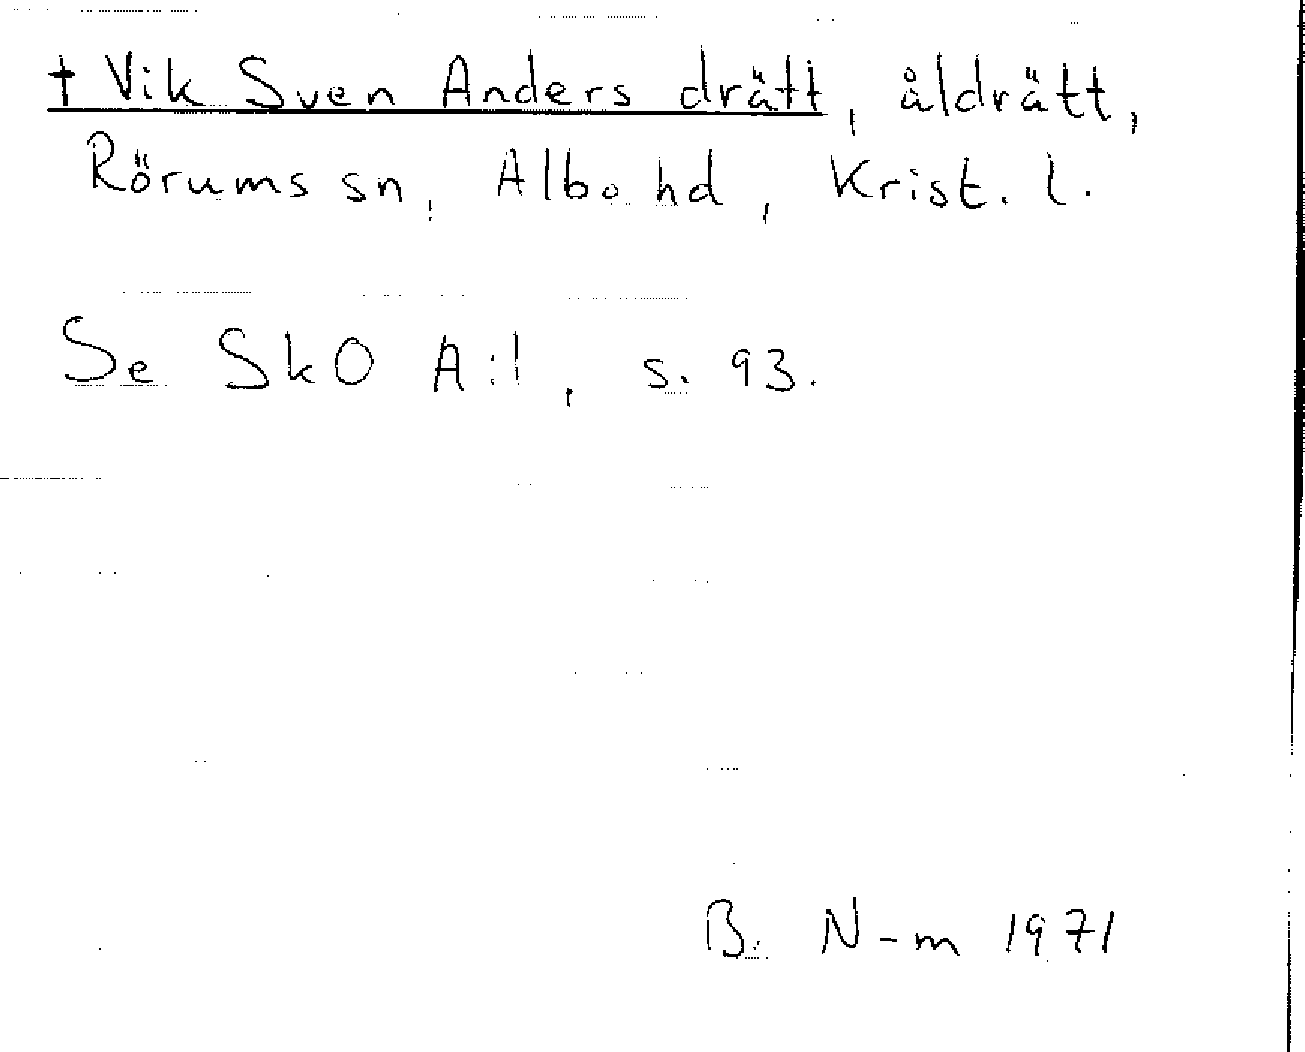 † Vik Sven Anders drätt, åldrätt,
Rörums sn, Albo hd, Krist. l.
Se SkO A:1, s. 93.
B. N-m 1971